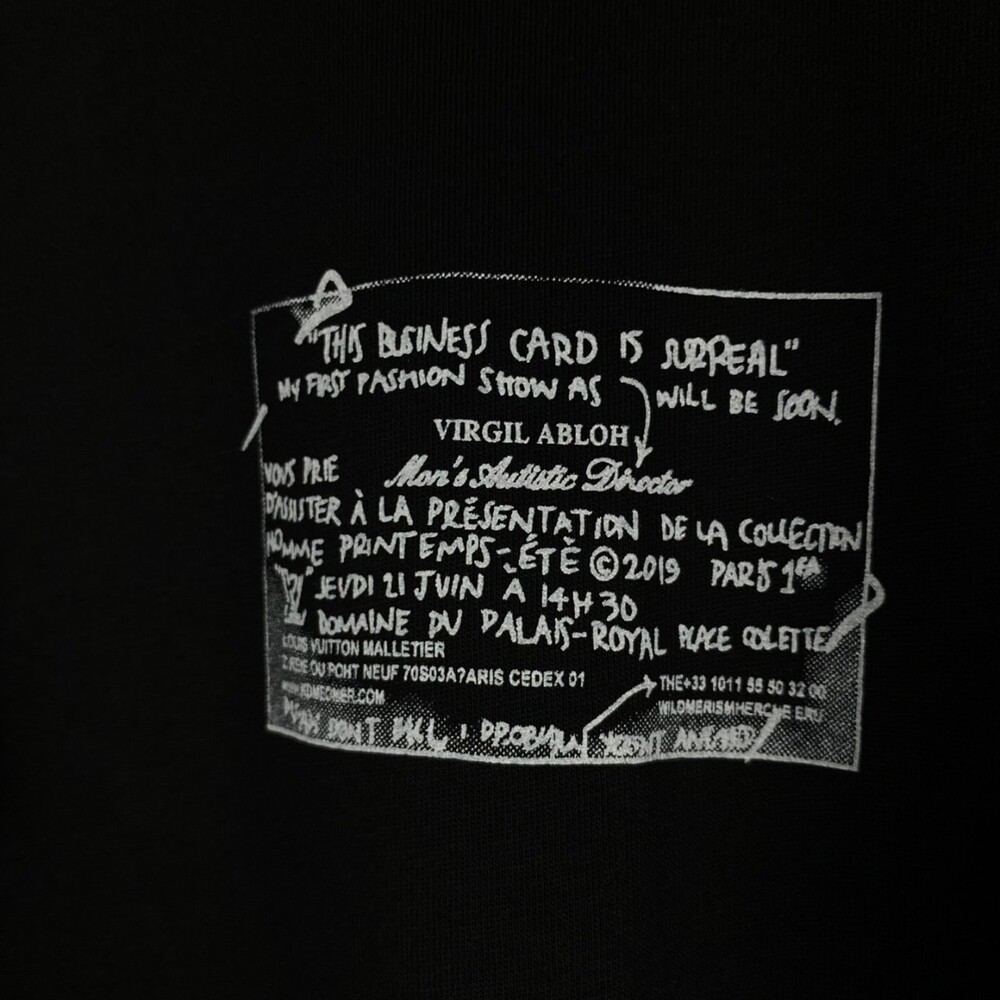 "THIS BUSINESS CARD IS SURREAL"
MY FIRST FASHION SHOW AS WILL BE SOON.
VIRGIL ABLOH
VOUS PRIE Men's Autistic Director
D'ASSISTER À LA PRÉSENTATION DE LA COLLECTION
HOMME PRINTEMPS-ÉTÈ ©2019 PARIS 1
JEUDI 21 JUIN À 14H30
DOMAINE DU PALAIS-ROYAL PLACE COLETTE
LOUIS VUITTON MALLETIER
PONT NEUF 70S03A?ARIS CEDEX 01
THE+33 1011 55 50 32 00
DON'T CALL, I